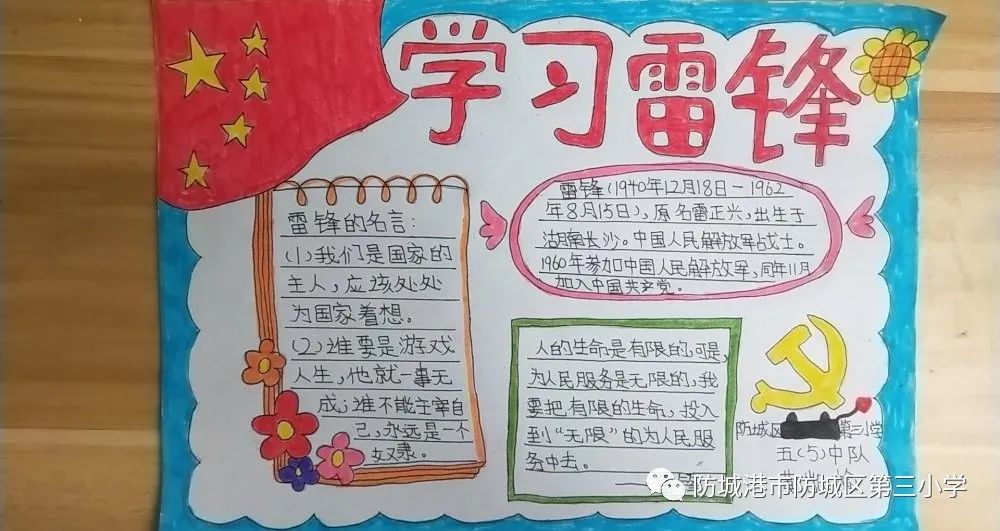 学习雷锋
雷锋的名言:
(1)我们是国家的
主人,应该处处
为国家着想。
(2)谁要是游戏
人生,他就一事无
成;谁不能主宰自
己,永远是一个
奴隶。
雷锋(1940年12月18日-1962
年8月15日),原名雷正兴,出生于
湖南长沙。中国人民解放军战士。
1960年参加中国人民解放军,同年11月
加入中国共产党。
人的生命是有限的,可是,
为人民服务是无限的,我
要把有限的生命,投入
到“无限”的为人民服
务中去。
防城区 第三小学
五(5)中队
防城港市防城区第三小学